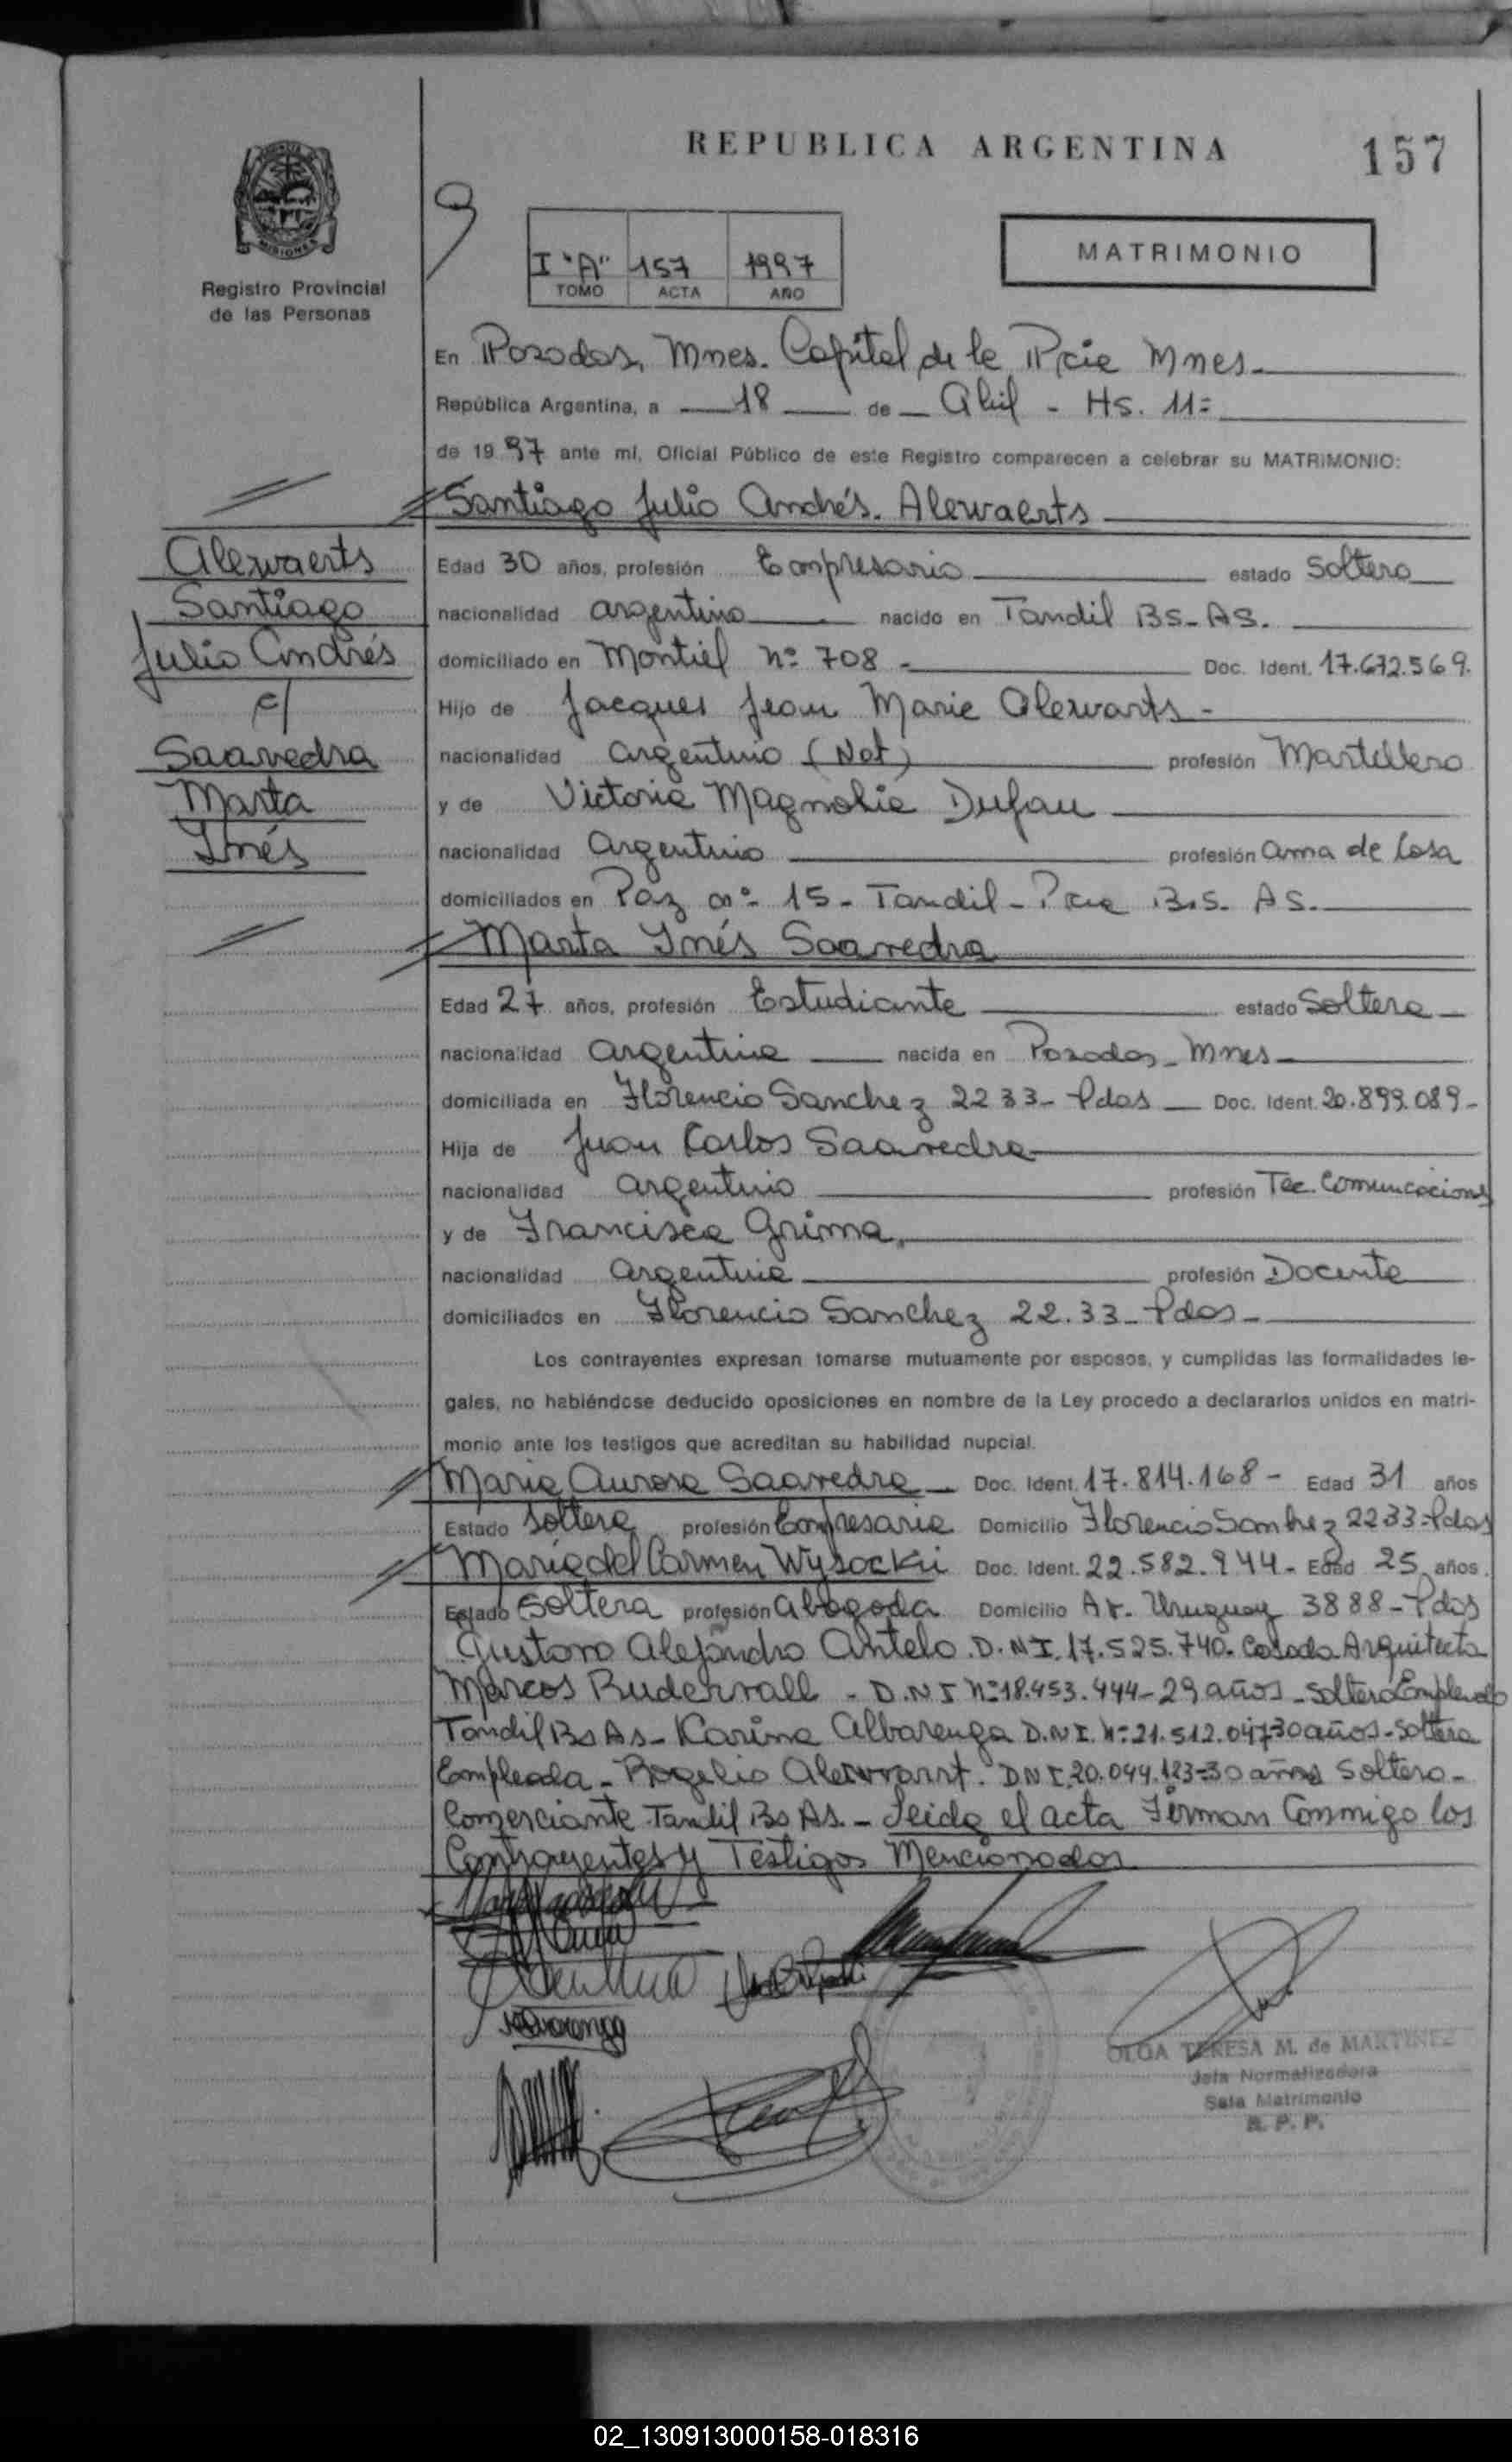 REPUBLICA ARGENTINA
157
MISIONES
Registro Provincial
de las Personas
I "A" 157 1997
TOMO ACTA AÑO
MATRIMONIO
En Posadas, Mnes. Capital de la Pcia Mnes.
República Argentina, a 18 de Abril - Hs. 11=
de 1997 ante mí, Oficial Público de este Registro comparecen a celebrar su MATRIMONIO:
Santiago Julio Andrés. Alewaerts
Alewaerts
Santiago
Julio Andrés
c/
Saavedra
Marta
Inés
Edad 30 años, profesión Empresario estado Soltero
nacionalidad argentino nacido en Tandil BS-AS.
domiciliado en Montiel nº 708 - Doc. Ident. 17.672.569.
Hijo de Jacques Jean Marie Alewarts -
nacionalidad argentino (Nat) profesión Martillero
y de Victoria Magnolia Dufau
nacionalidad Argentino profesión ama de Casa
domiciliados en Paz nº 15 - Tandil - Pcia B.S. AS.
Marta Inés Saavedra
Edad 27 años, profesión Estudiante estado Soltera
nacionalidad argentina nacida en Posadas - Mnes
domiciliada en Florencio Sanchez 2233 - Pdas Doc. Ident. 20.899.089-
Hija de Juan Carlos Saavedra
nacionalidad argentino profesión Tec. Comunicaciones
y de Francisca Grima.
nacionalidad argentina profesión Docente
domiciliados en Florencio Sanchez 22.33 - Pdas -
Los contrayentes expresan tomarse mutuamente por esposos, y cumplidas las formalidades le-
gales, no habiéndose deducido oposiciones en nombre de la Ley procedo a declararlos unidos en matri-
monio ante los testigos que acreditan su habilidad nupcial.
Maria Aurora Saavedra Doc. Ident. 17.814.168 - Edad 31 años
Estado Soltera profesión Empresaria Domicilio Florencio Sanchez 2233-Pdas
Maria del Carmen Wysocki Doc. Ident. 22.582.944 - Edad 25 años.
Estado Soltera profesión Abogada Domicilio Av. Uruguay 3888 - Pdas
Gustavo Alejandro Antelo. D.N.I. 17.525.740. Casado Arquitecto
Marcos Rudervall - D.N.I nº 18.453.444 - 29 años - Soltero Empleado
Tandil Bs As - Karina Albarenga D.N.I. Nº 21.512.047 30 años - Soltera
Empleada - Rogelio DNI 20.044.123 - 30 años Soltero -
Comerciante Tandil Bs As. - Leida el acta Firman Conmigo los
Contrayentes y Testigos Mencionados
OLGA TERESA M. de MARTINEZ
Jefa Normalizadora
Sala Matrimonio
R. P. P.
02_130913000158-018316